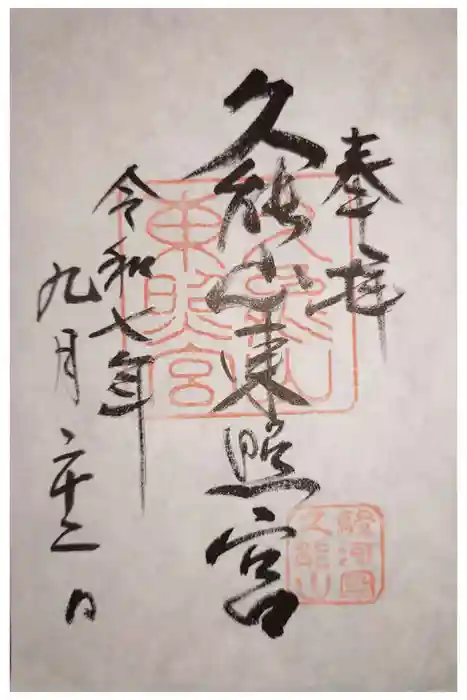 奉拝
久能山東照宮
令和七年
九月二十二日
久能山
東照宮
駿河國
久能山